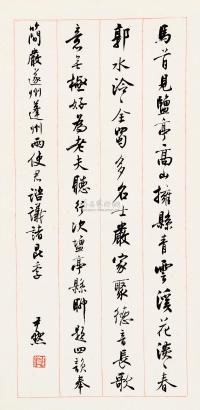 馬首見鹽亭高山擁縣青雲溪花淡淡春
郭水泠泠全蜀多名士嚴家聚德音長歌
意無極好為老夫聽行次鹽亭縣聊題四韻奉
簡嚴遂州蓬州兩使君諮議諸昆季
尹默